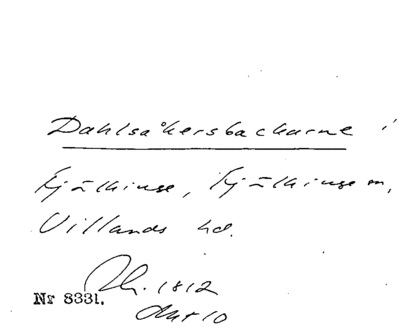 Dahlsåkersbackarne i
Kjälkinge, Kjälkinge sn,
Villands hd.
1812
Nr 8331.
Akt 10